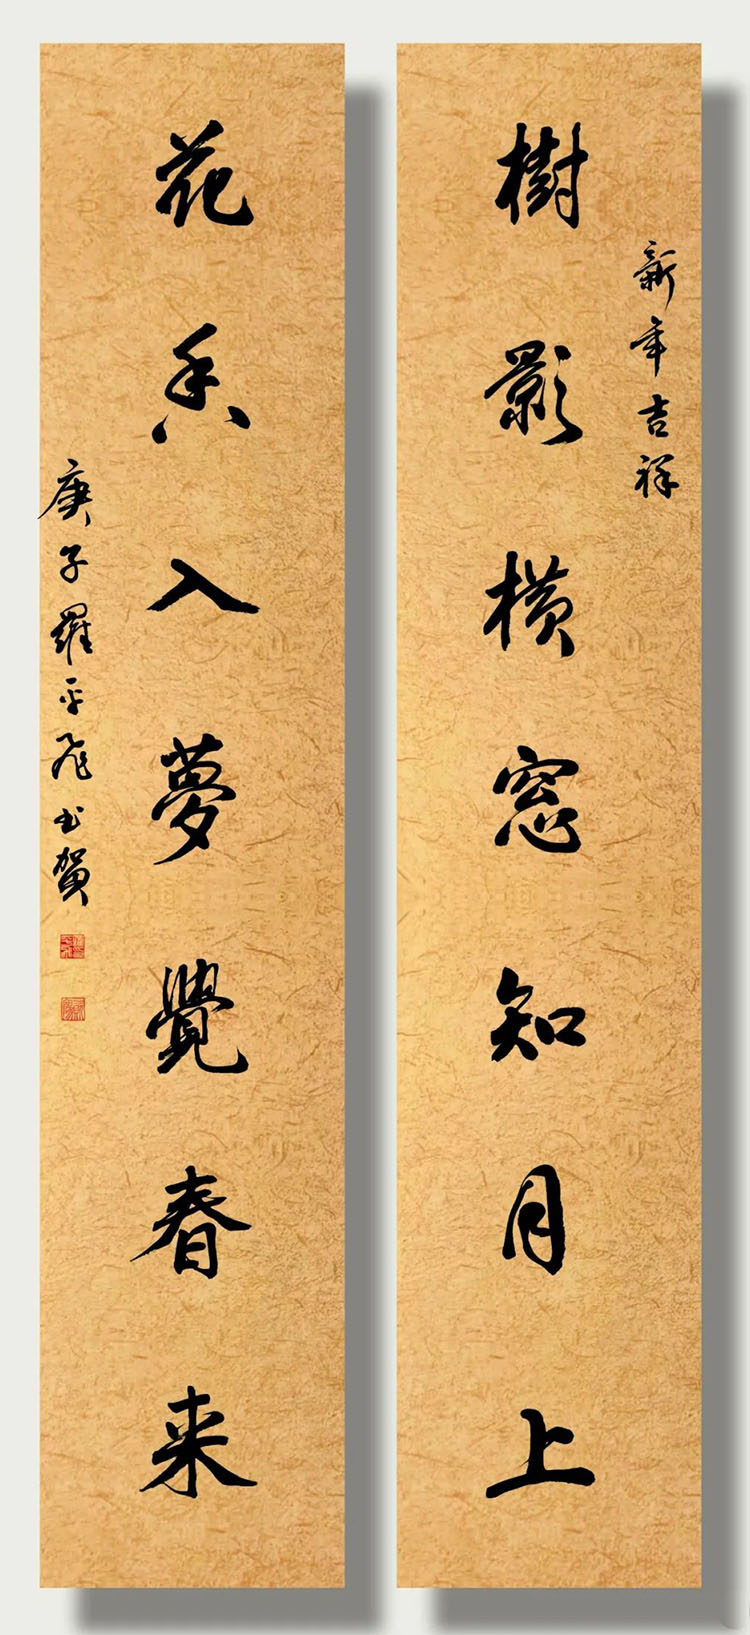 新年吉祥
樹影橫窓知月上
花香入夢覺春来
庚子羅平飛书賀